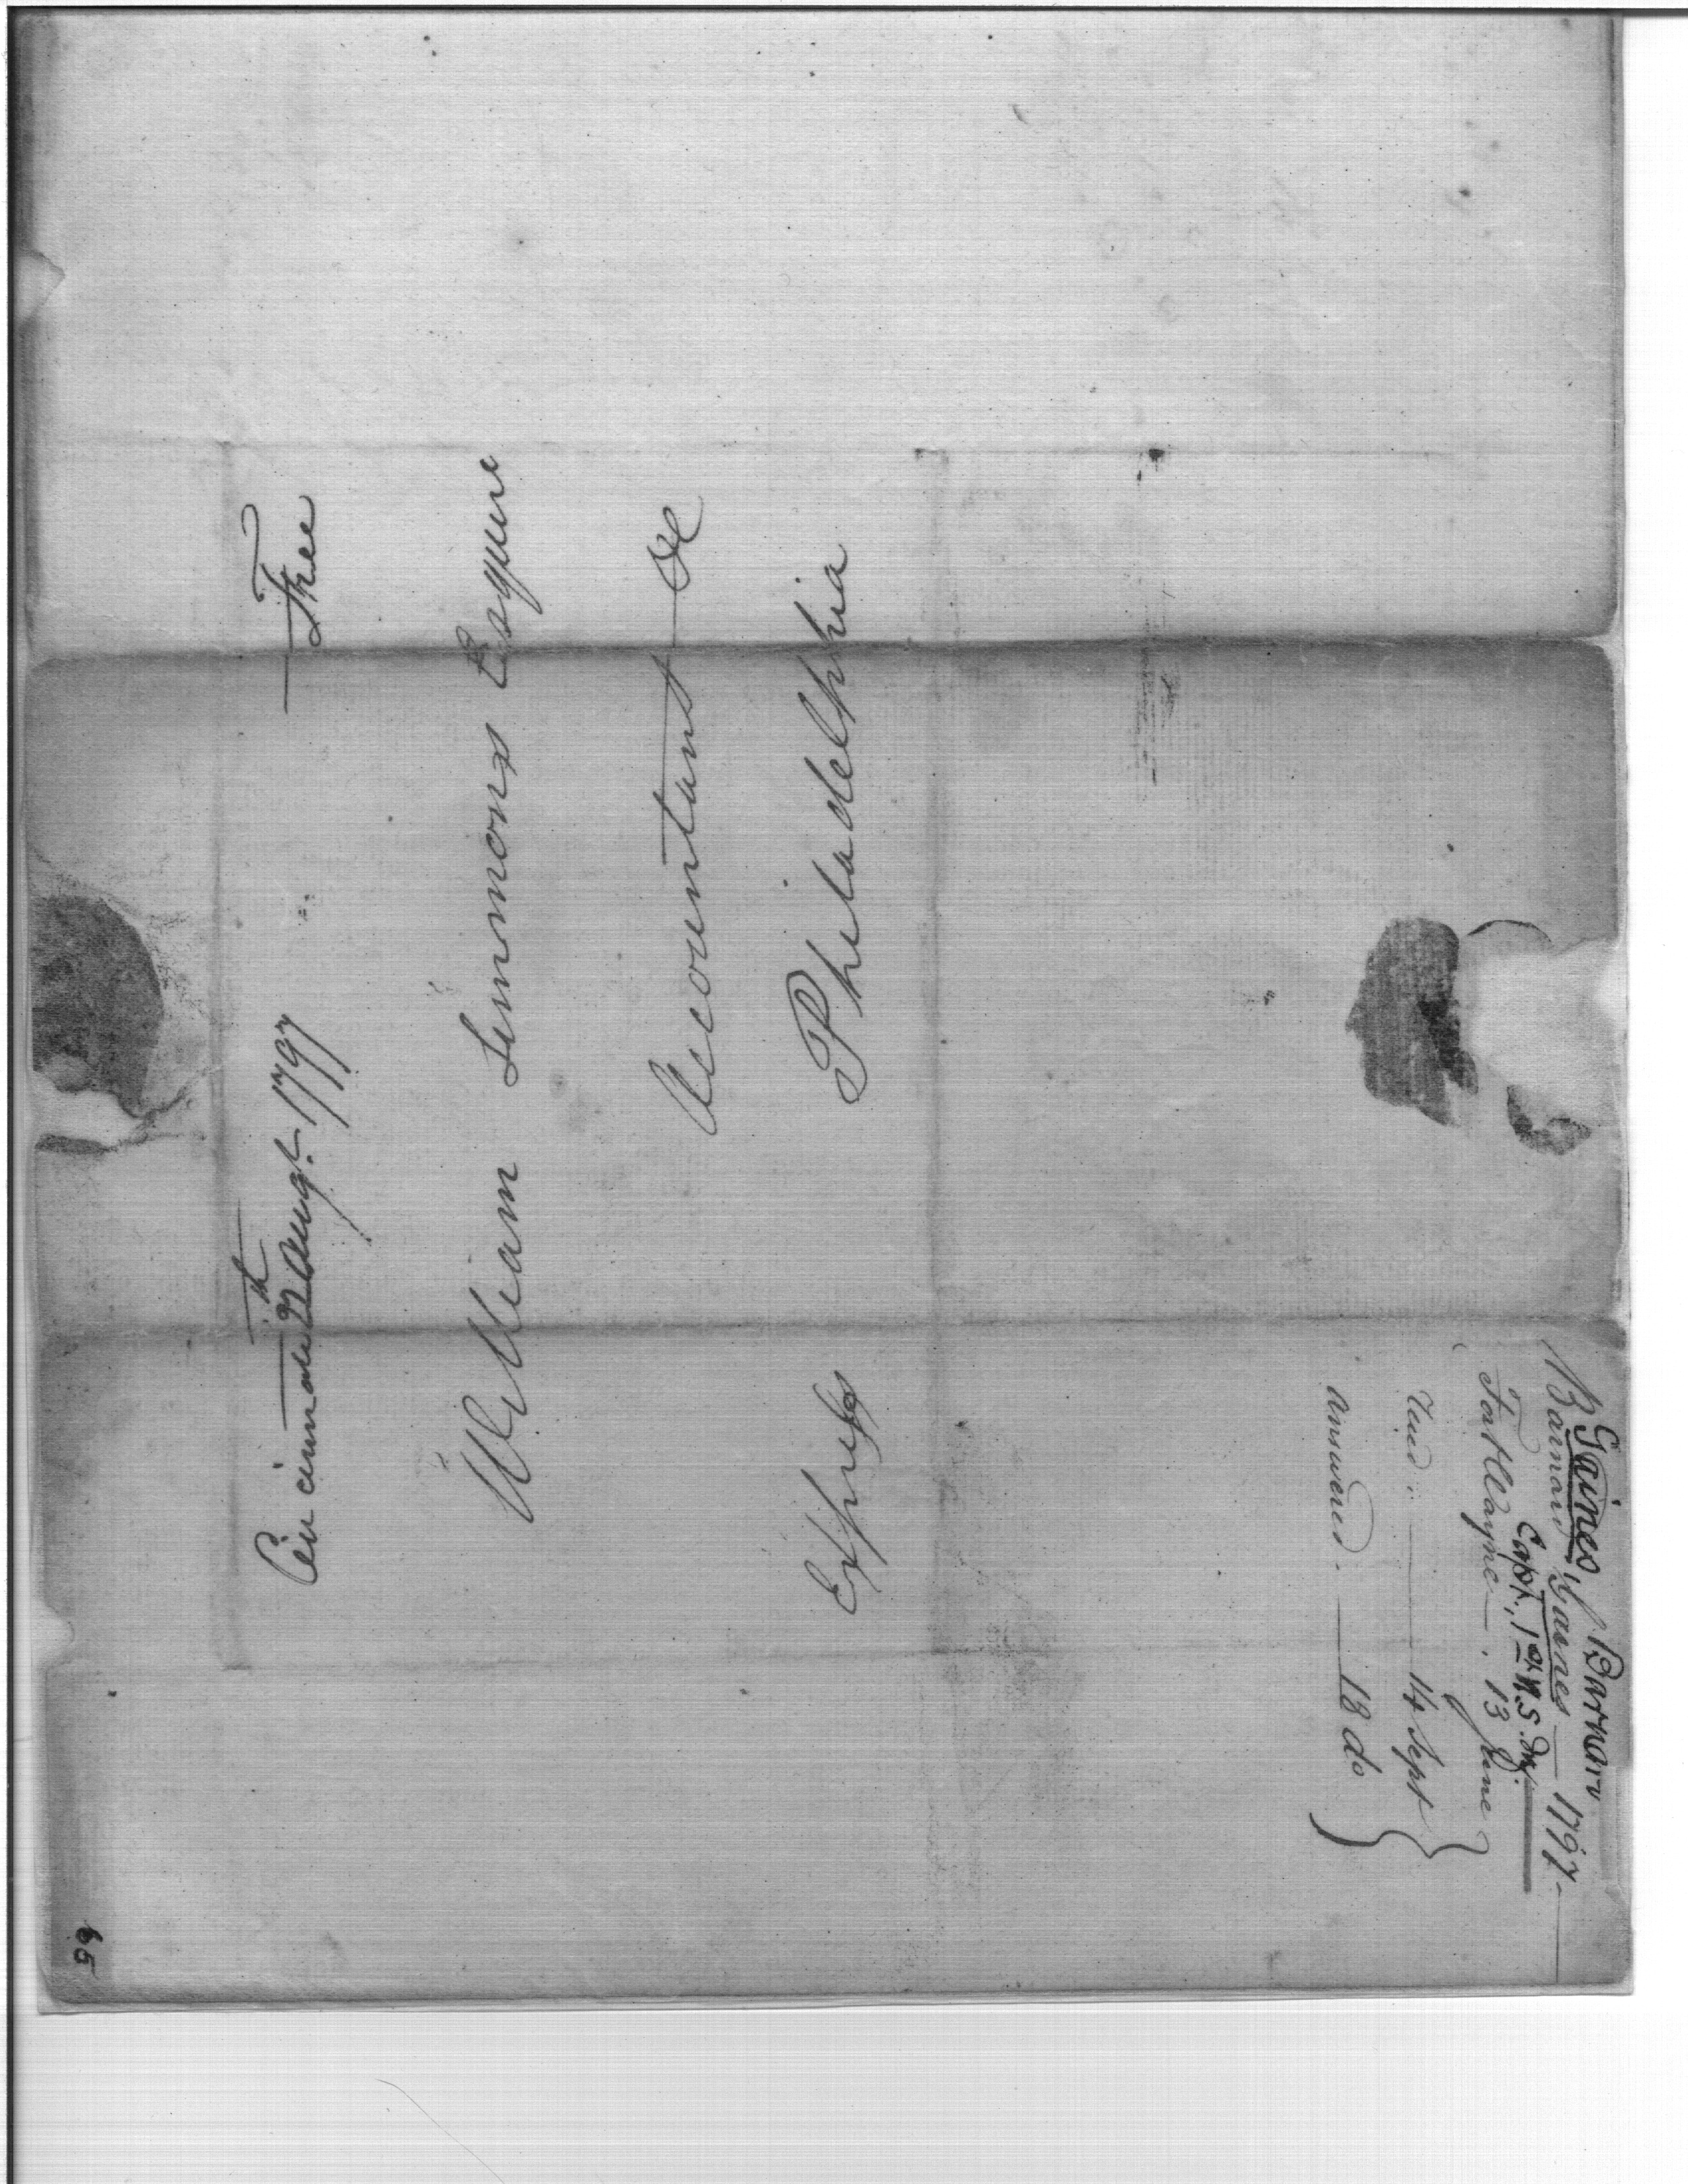 Cincinnati 22th Augt. 1797
Free
William Simmons Esquire
Accountant &c
Philadelphia
Express
Gaines, Barnard
Barnard Gaines — 1797 —
Capt., 1st U.S. Inf.
Fort Wayne —, 13 June
Recd. — 14 Sept
answered. — 18 do
65